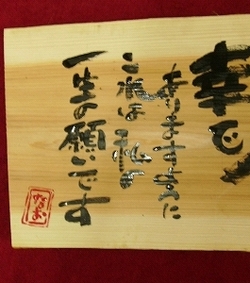 幸せで
ありますように
これは私の
一生の願いです